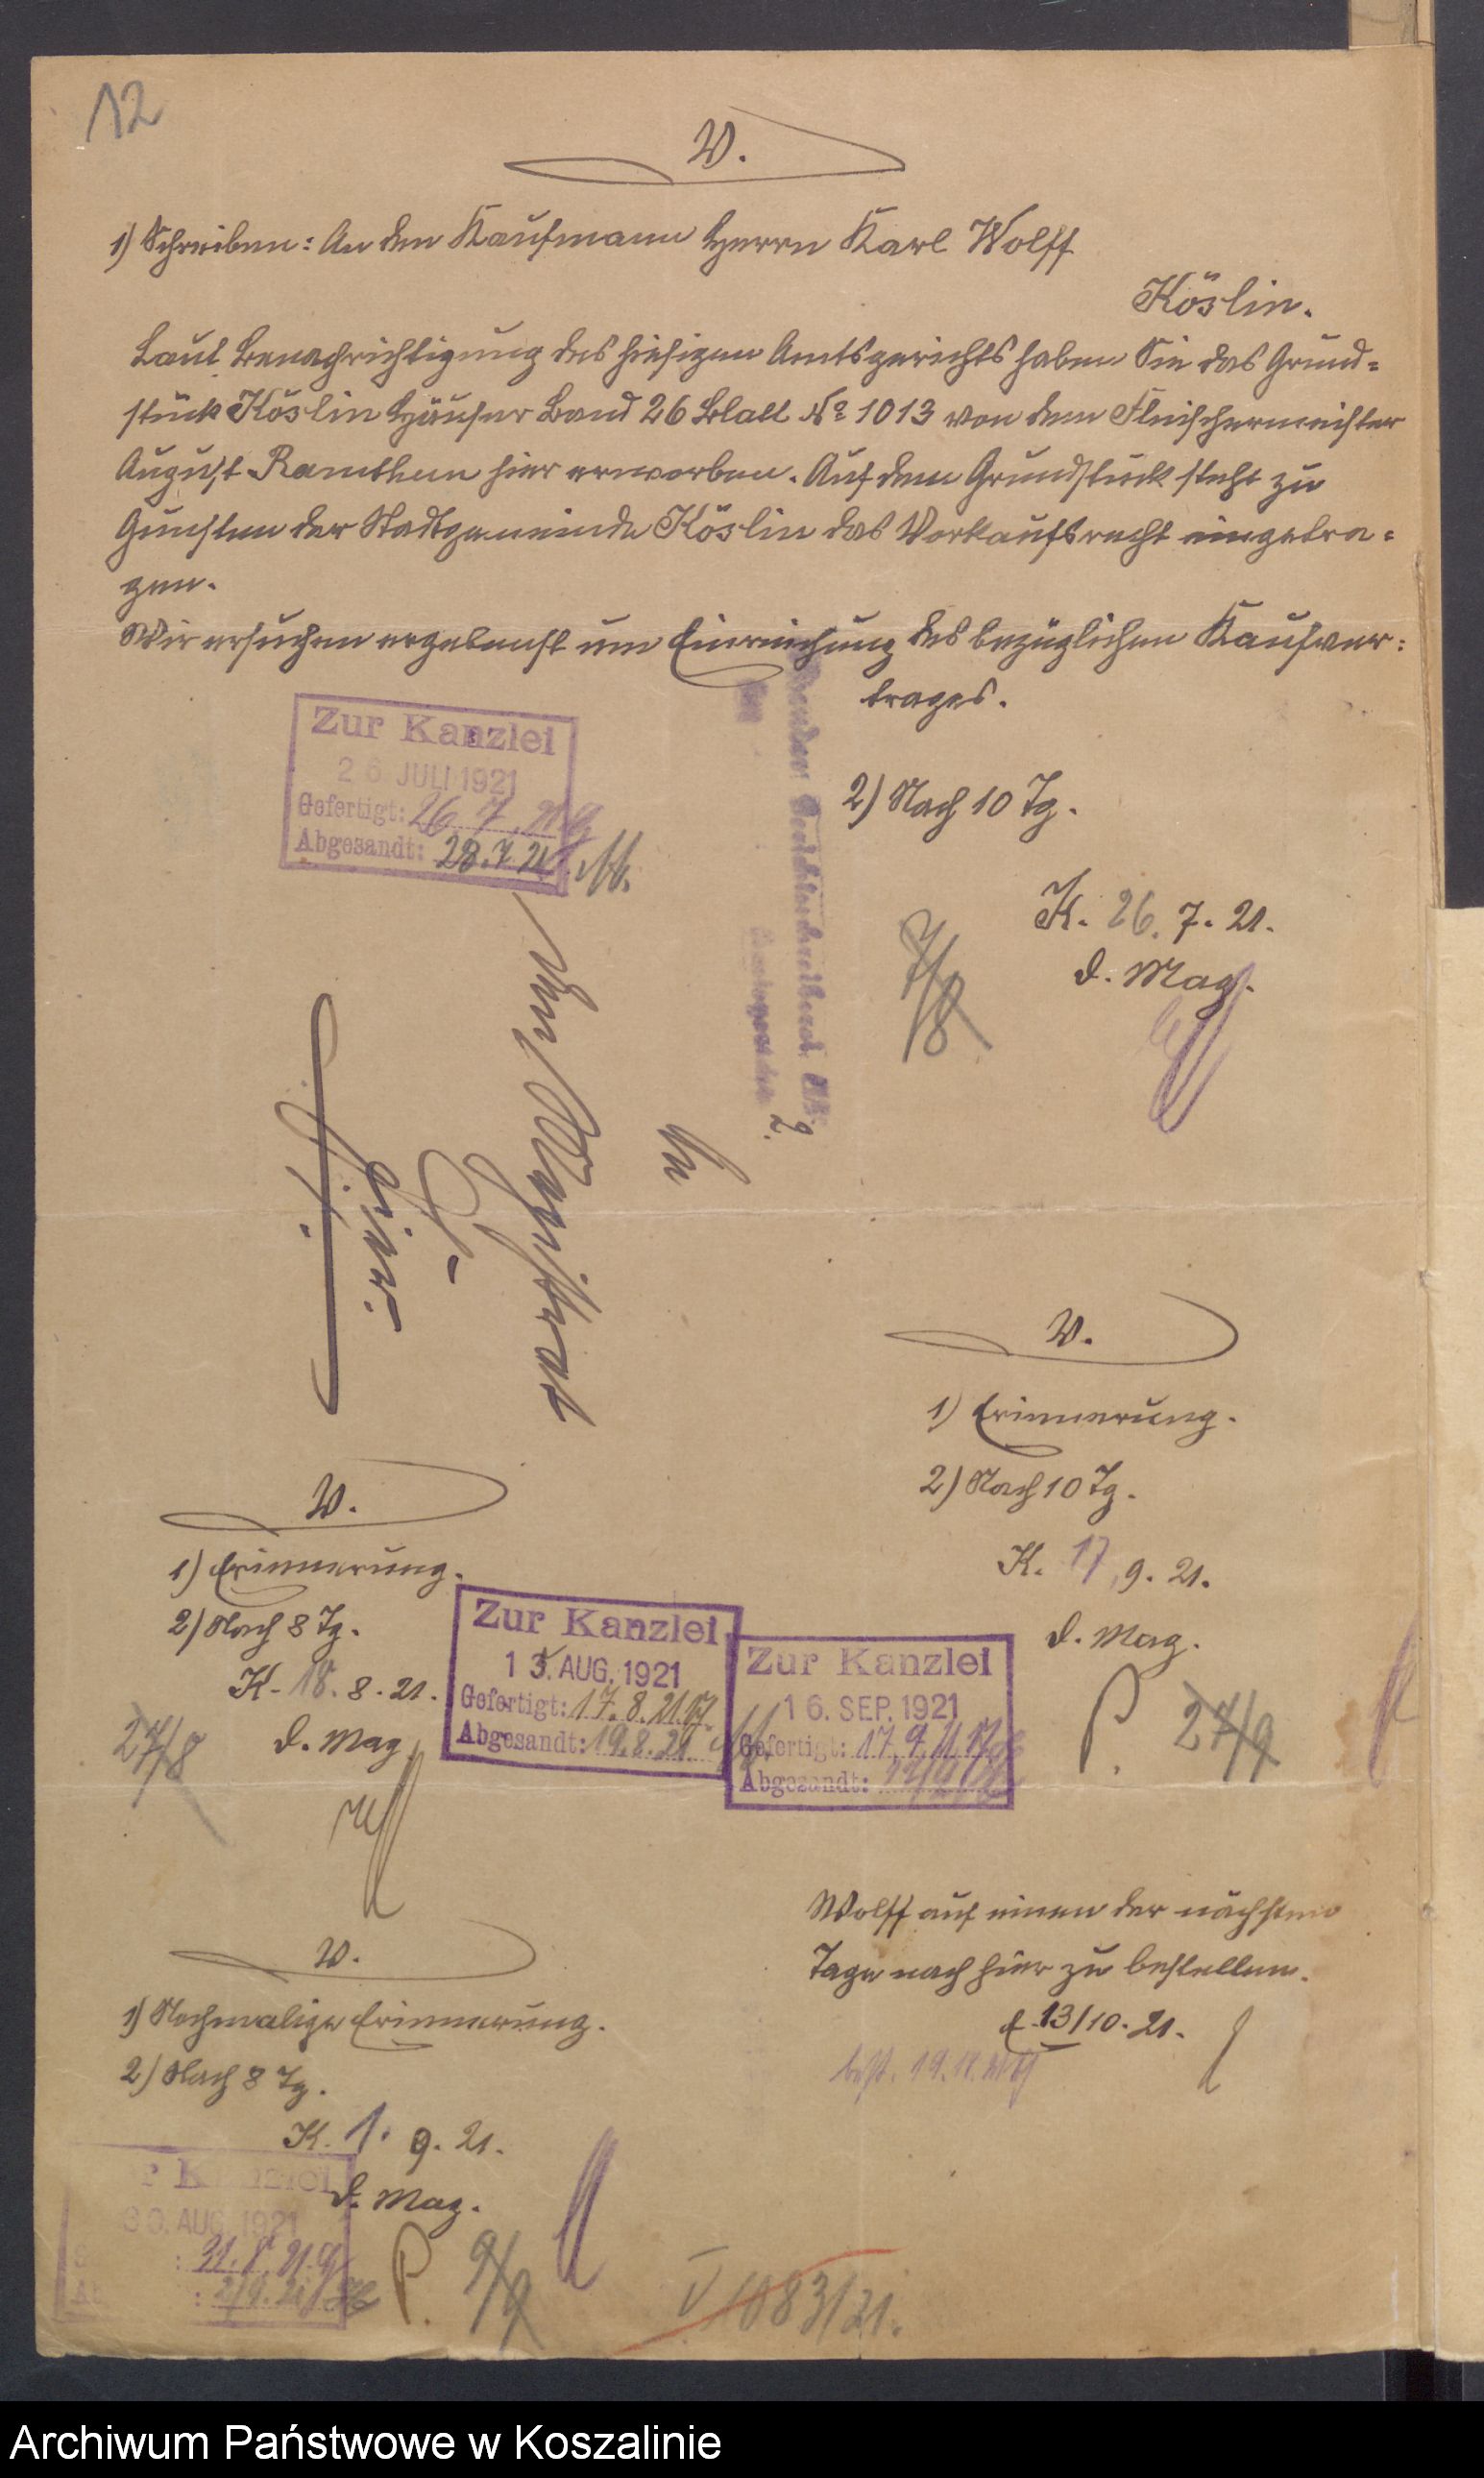 12
V.
1) Schreiben: An den Kaufmann Herrn Karl Wolff
Köslin.
Laut Benachrichtigung des hiesigen Amtsgerichts haben Sie das Grund=
stück Köslin Häuser Band 26 Blatt No 1013 von dem Fleischermeister
August Ramthun hier erworben. Auf dem Grundstück steht zu
Gunsten der Stadtgemeinde Köslin das Vorkaufsrecht eingetra=
gen.
Wir ersuchen ergebenst um Einreichung des bezüglichen Kaufver=
trages.
Zur Kanzlei
26 JULI 1921
Gefertigt: 26 7. 21
Abgesandt: 28.7.21
2) Nach 10 Tg.
K. 26. 7. 21.
d. Mag.
7/8
An
den Magistrat
hier
V.
1) Erinnerung.
2) Nach 10 Tg.
K. 17. 9. 21.
d. Mag.
27/9
V.
1) Erinnerung.
2) Nach 8 Tg.
K. 18. 8. 21.
d. Mag.
27/8
Zur Kanzlei
15. AUG. 1921
Gefertigt: 17. 8. 21.
Abgesandt: 19. 8. 21
Zur Kanzlei
16. SEP. 1921
Gefertigt: 17. 9. 21
Abgesandt:
Wolff auf einen der nächsten
Tage nach hier zu bestellen.
13/10. 21.
best. 19.
V.
1) Nochmalige Erinnerung.
2) Nach 8 Tg.
K. 1. 9. 21.
d. Mag.
Kanzlei
30. AUG. 1921
31. 8. 21.
2/9. 21
P. 9/9
V 1083/21.
Archiwum Państwowe w Koszalinie